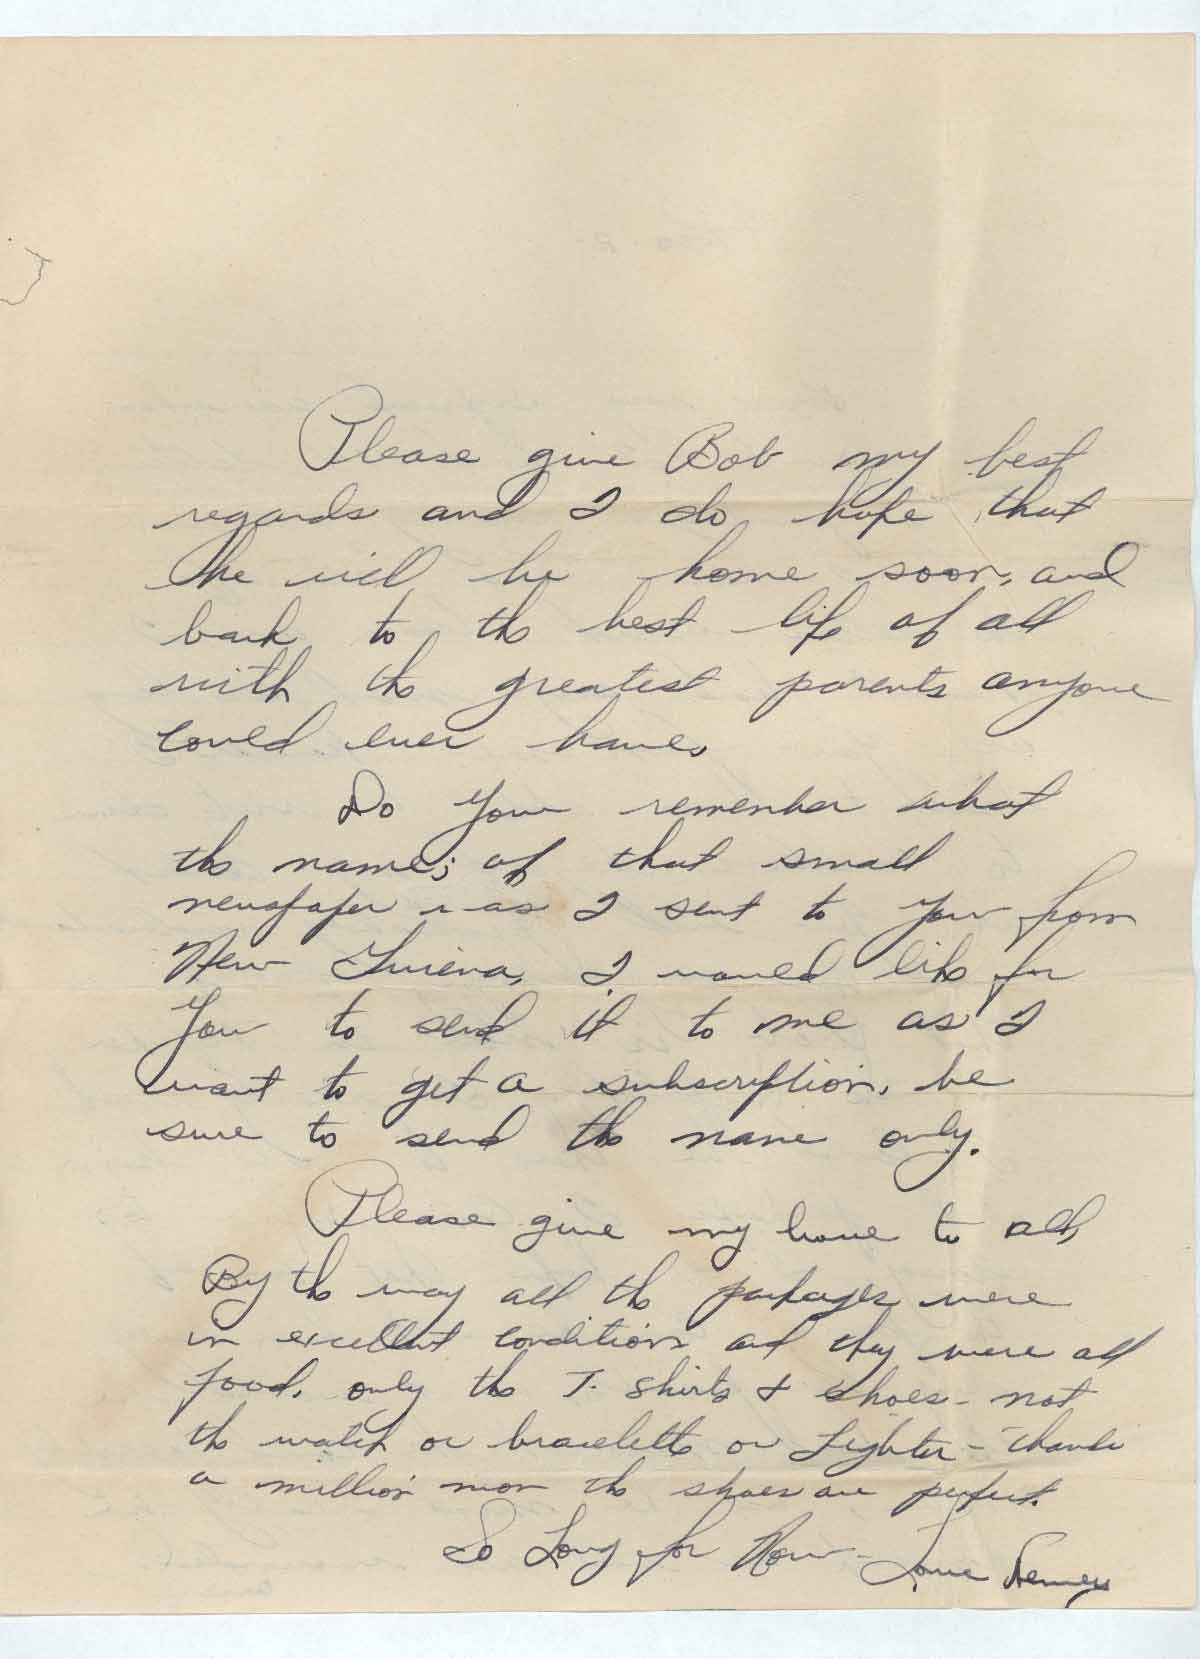 Please give Bob my best
regards and I do hope that
he will be home soon, and
back to the best life of all
with the greatest parents anyone
could ever have.
Do you remember what
the name, of that small
newspaper was I sent to you from
New Guiena, I would like for
You to send it to me as I
want to get a subscription, be
sure to send the name only.
Please give my love to all,
By the way all the packages were
in excellent condition and they were all
food, only the T. Shirts & shoes - not
the watch or bracelette or Lighter - Thanks
a million mom the shoes are perfect.
So Long for Now - Love